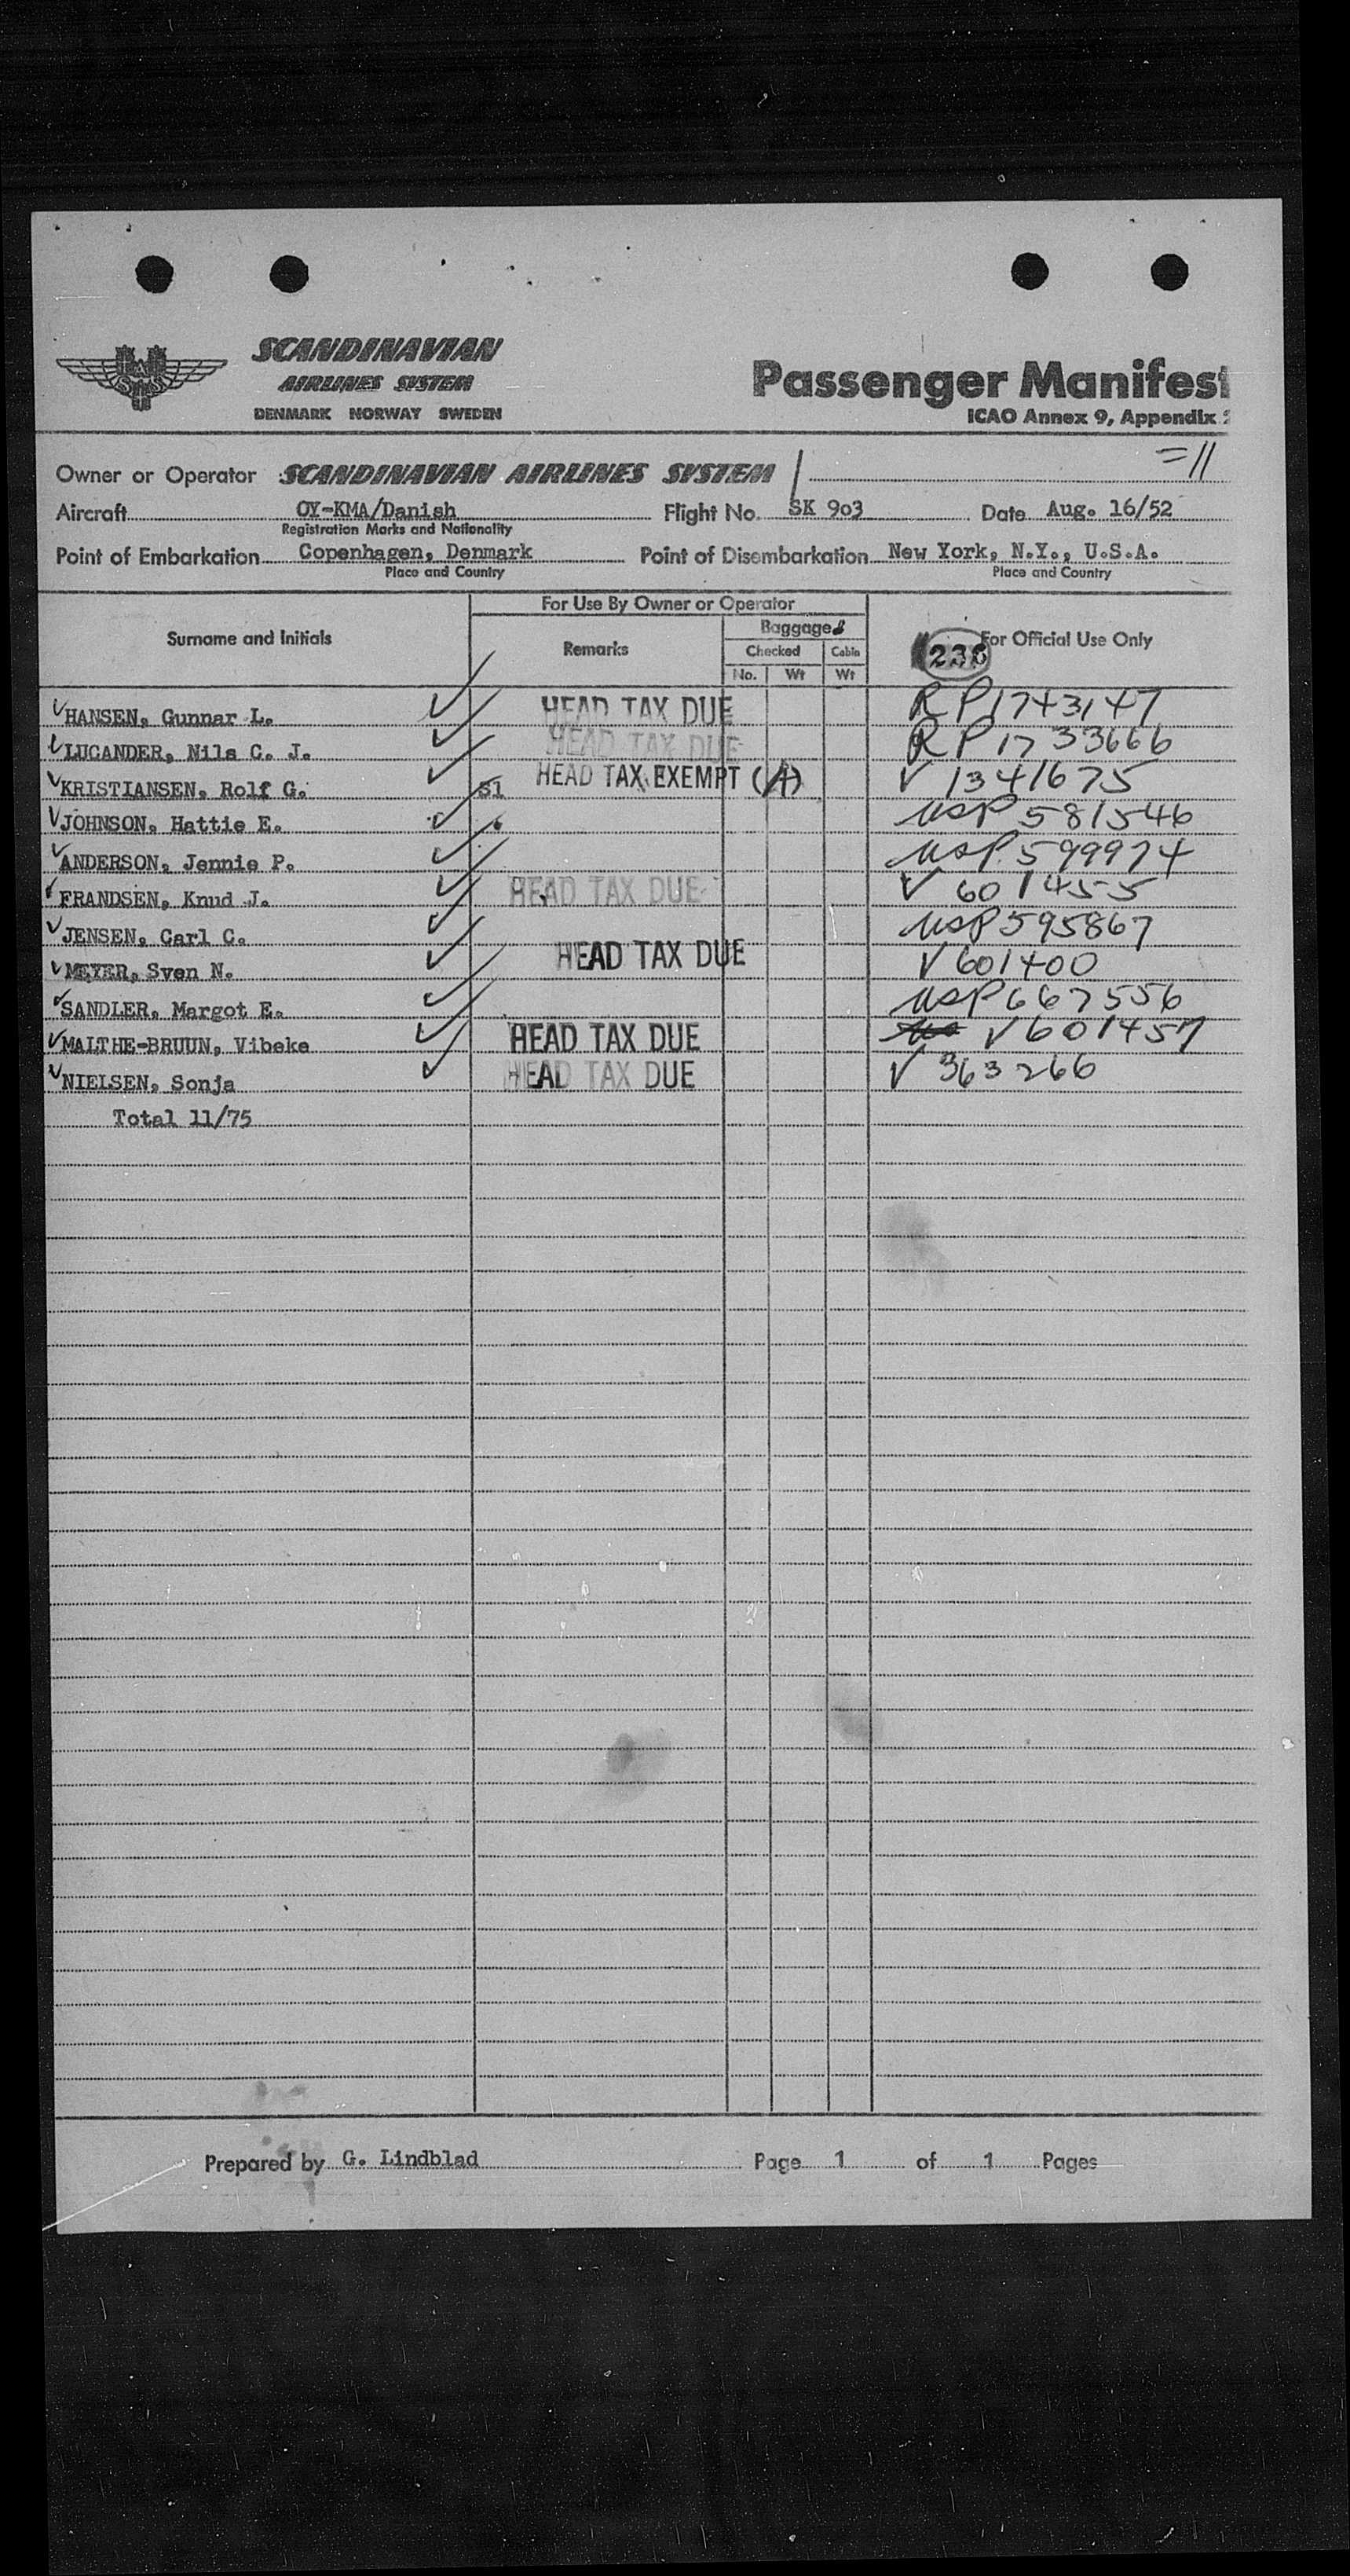 SCANDINAVIAN
AIRLINES SYSTEM
DENMARK NORWAY SWEDEN
SAS
Passenger Manifest
ICAO Annex 9, Appendix
=11
Owner or Operator SCANDINAVIAN AIRLINES SYSTEM
Aircraft OY-KMA/Danish Flight No. SK 903 Date Aug. 16/52
Registration Marks and Nationality
Point of Embarkation Copenhagen, Denmark Point of Disembarkation New York, N.Y., U.S.A.
Place and Country Place and Country
For Use By Owner or Operator
Surname and Initials Remarks Baggage For Official Use Only
Checked Cabin
No. Wt Wt
HANSEN, Gunnar L. HEAD TAX DUE RP1743147
LUCANDER, Nils C. J. HEAD TAX DUE RP1733666
KRISTIANSEN, Rolf G. S1 HEAD TAX EXEMPT (A) V 1341675
JOHNSON, Hattie E. USP 581546
ANDERSON, Jennie P. USP 599974
FRANDSEN, Knud J. HEAD TAX DUE V 601455
JENSEN, Carl C. USP 595867
MEYER, Sven N. HEAD TAX DUE V 601400
SANDLER, Margot E. USP 667556
MALTHE-BRUUN, Vibeke HEAD TAX DUE V 601457
NIELSEN, Sonja HEAD TAX DUE V 363266
Total 11/75
Prepared by G. Lindblad Page 1 of 1 Pages